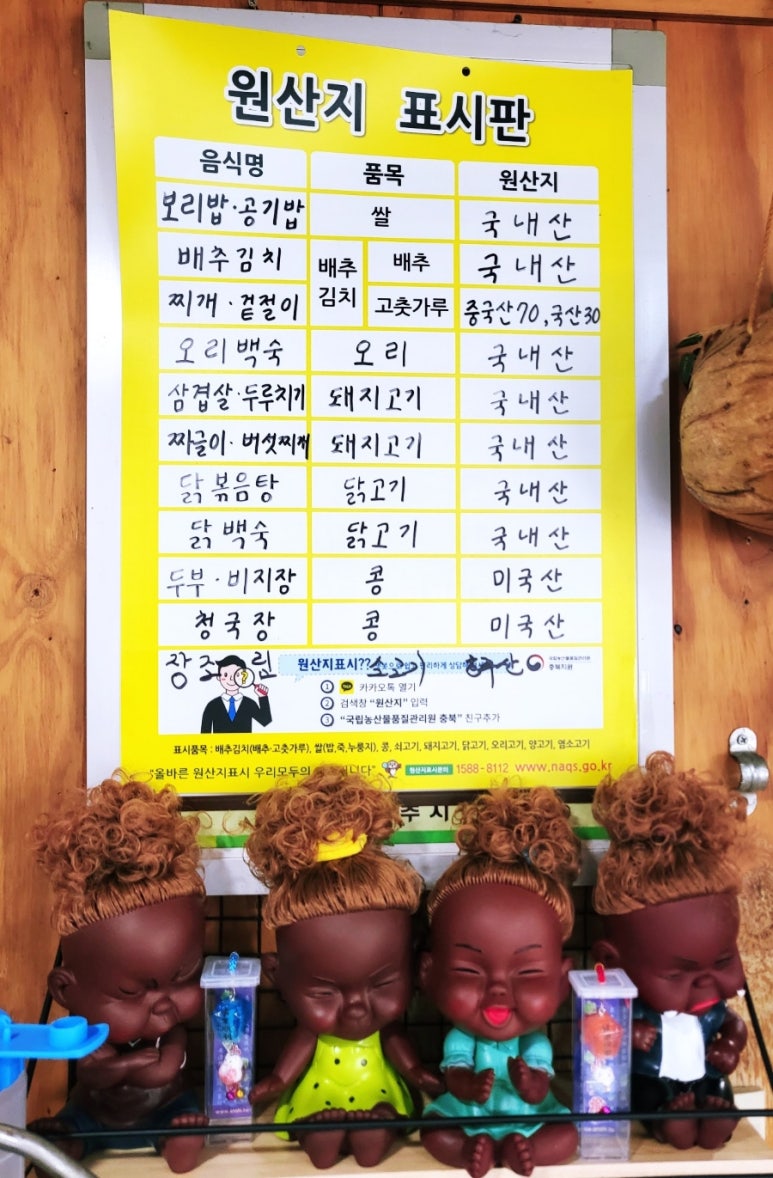 원산지 표시판
음식명 품목 원산지
보리밥·공기밥 쌀 국내산
배추김치 배추김치 배추 국내산
찌개·겉절이 고춧가루 중국산70,국산30
오리백숙 오리 국내산
삼겹살·두루치기 돼지고기 국내산
짜글이·버섯찌개 돼지고기 국내산
닭볶음탕 닭고기 국내산
닭백숙 닭고기 국내산
두부·비지장 콩 미국산
청국장 콩 미국산
장조림
원산지표시??
국립농산물품질관리원
충북지원
① 카카오톡 열기
② 검색창 "원산지" 입력
③ "국립농산물품질관리원 충북" 친구추가
표시품목 : 배추김치(배추·고춧가루), 쌀(밥,죽,누룽지), 콩, 쇠고기, 돼지고기, 닭고기, 오리고기, 양고기, 염소고기
"올바른 원산지표시 우리모두의
원산지표시문의 1588-8112 www.naqs.go.kr
주시